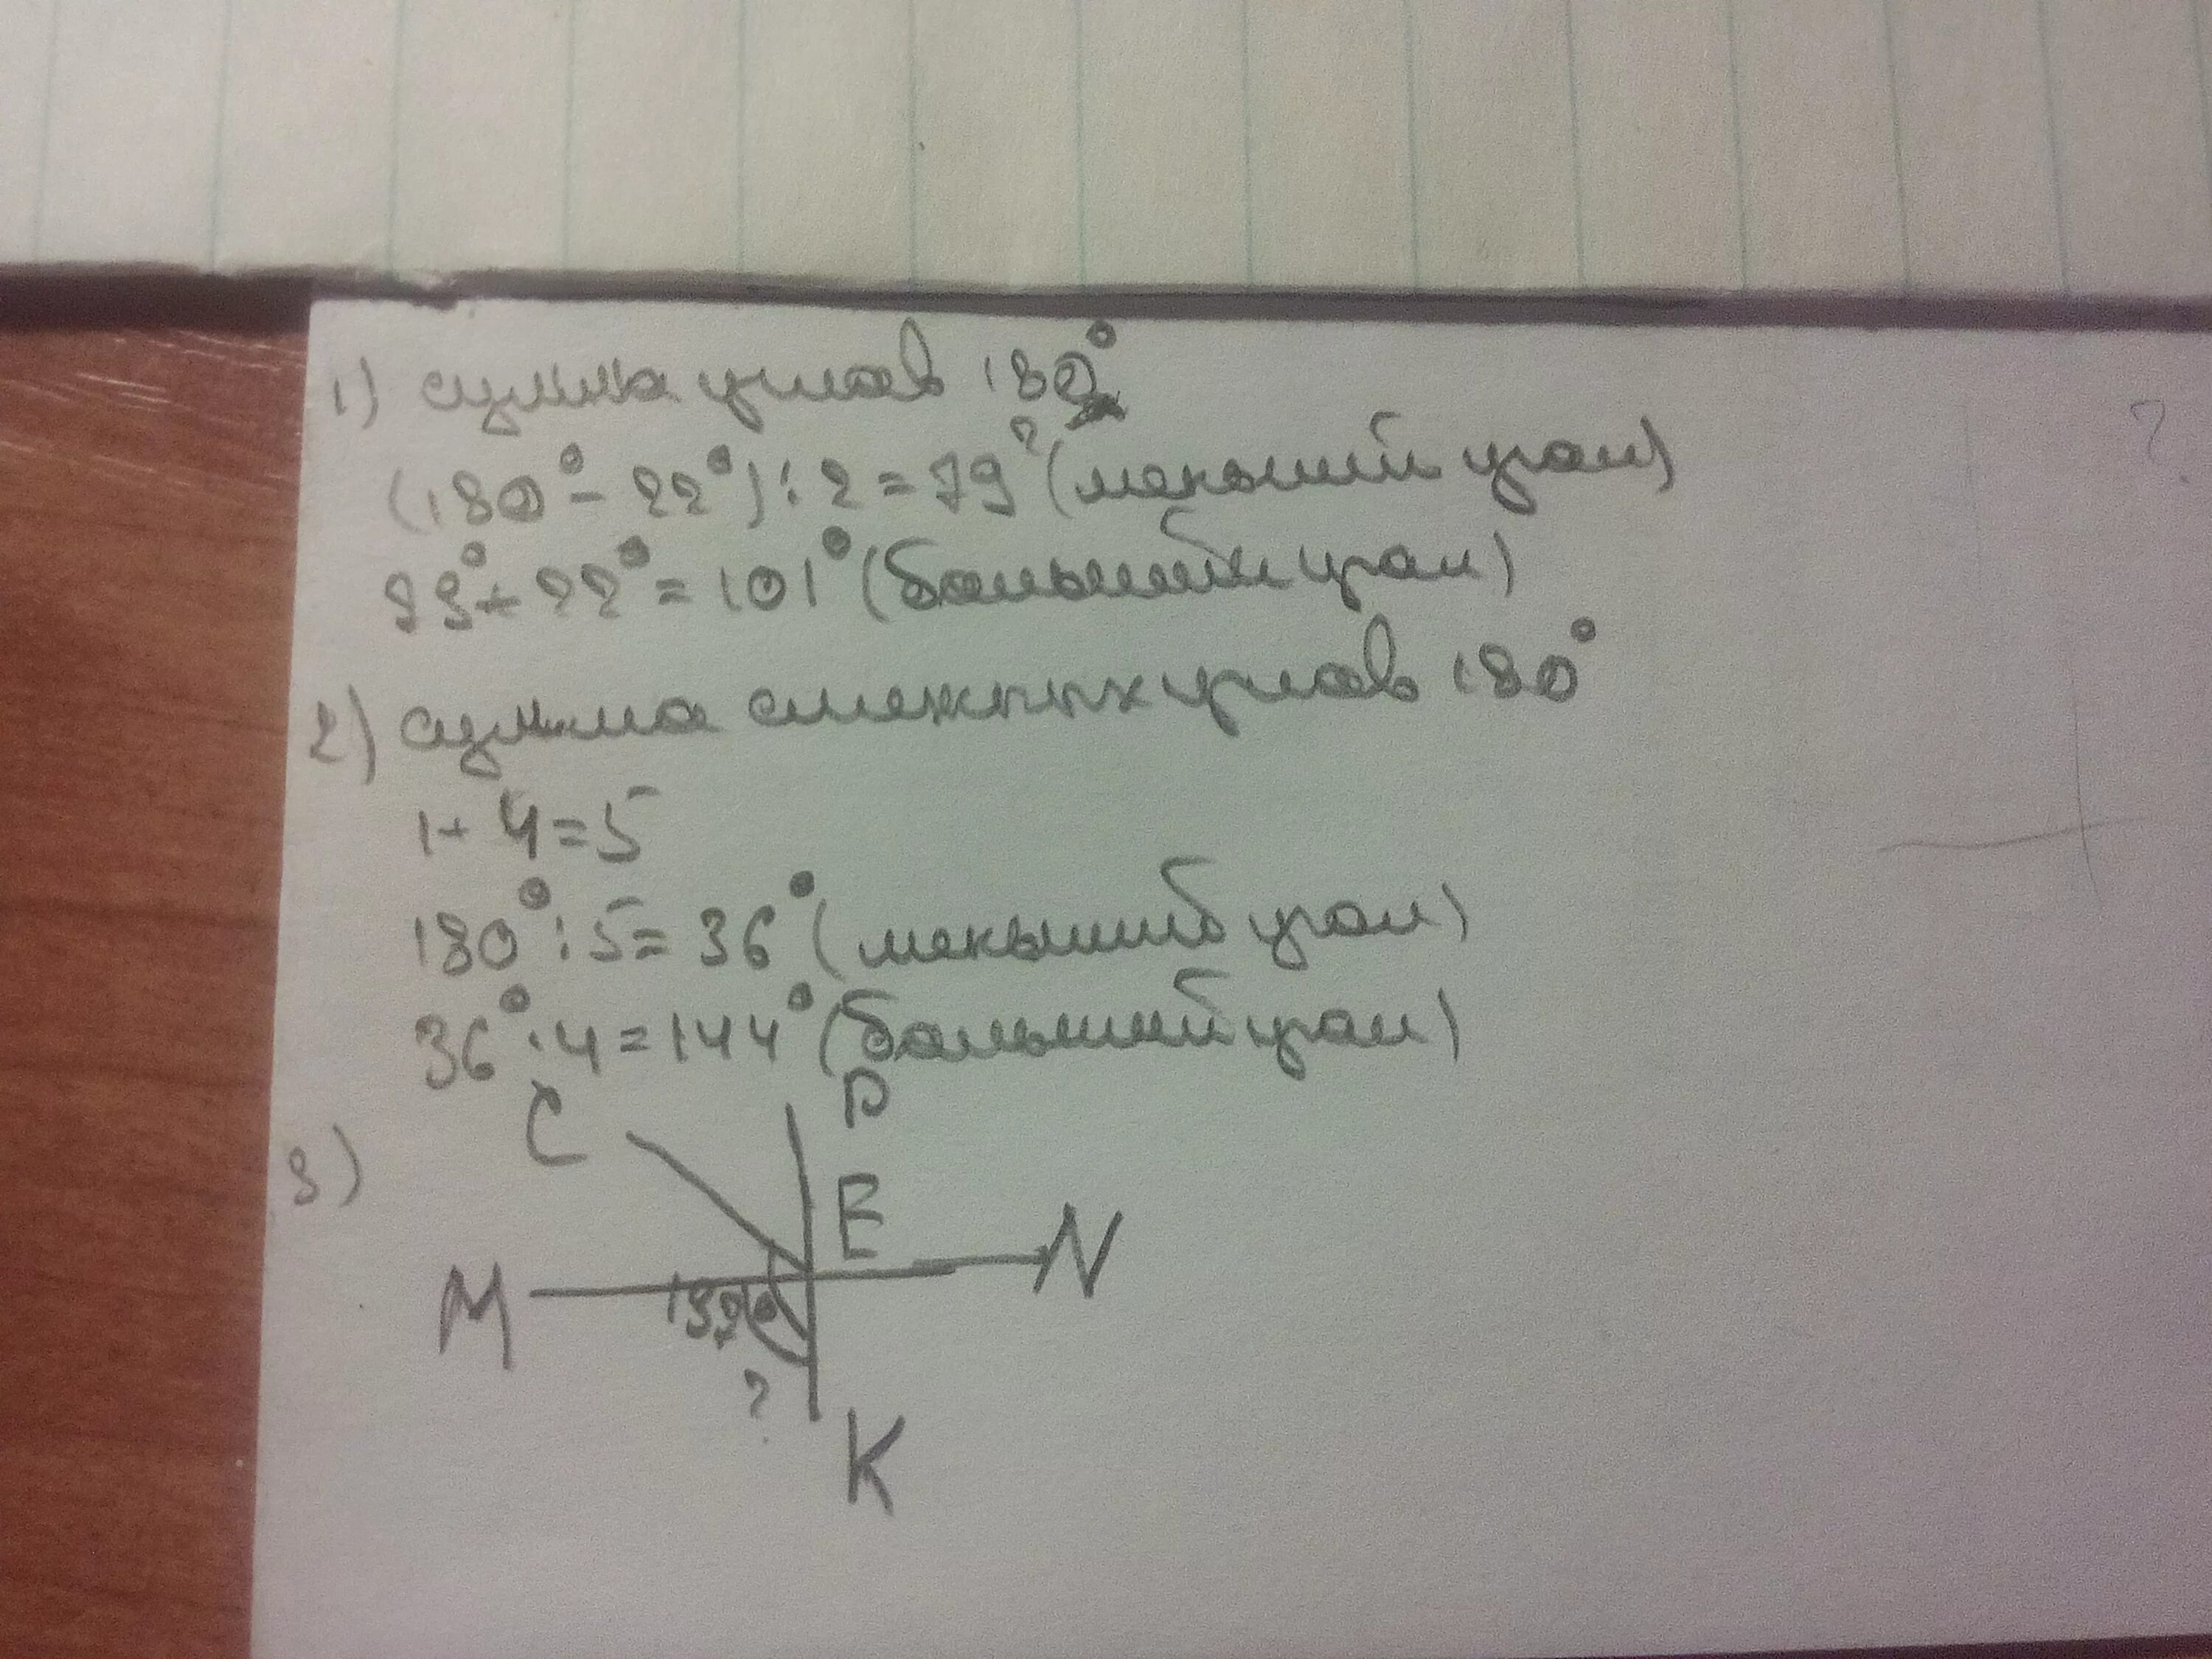 1) сумма углов 180°
(180° - 22°) : 2 = 79° (меньший угол)
79° + 22° = 101° (больший угол)
2) сумма смежных углов 180°
1 + 4 = 5
180° : 5 = 36° (меньший угол)
36° · 4 = 144° (больший угол)
3)
C
D
E
M
N
?
K